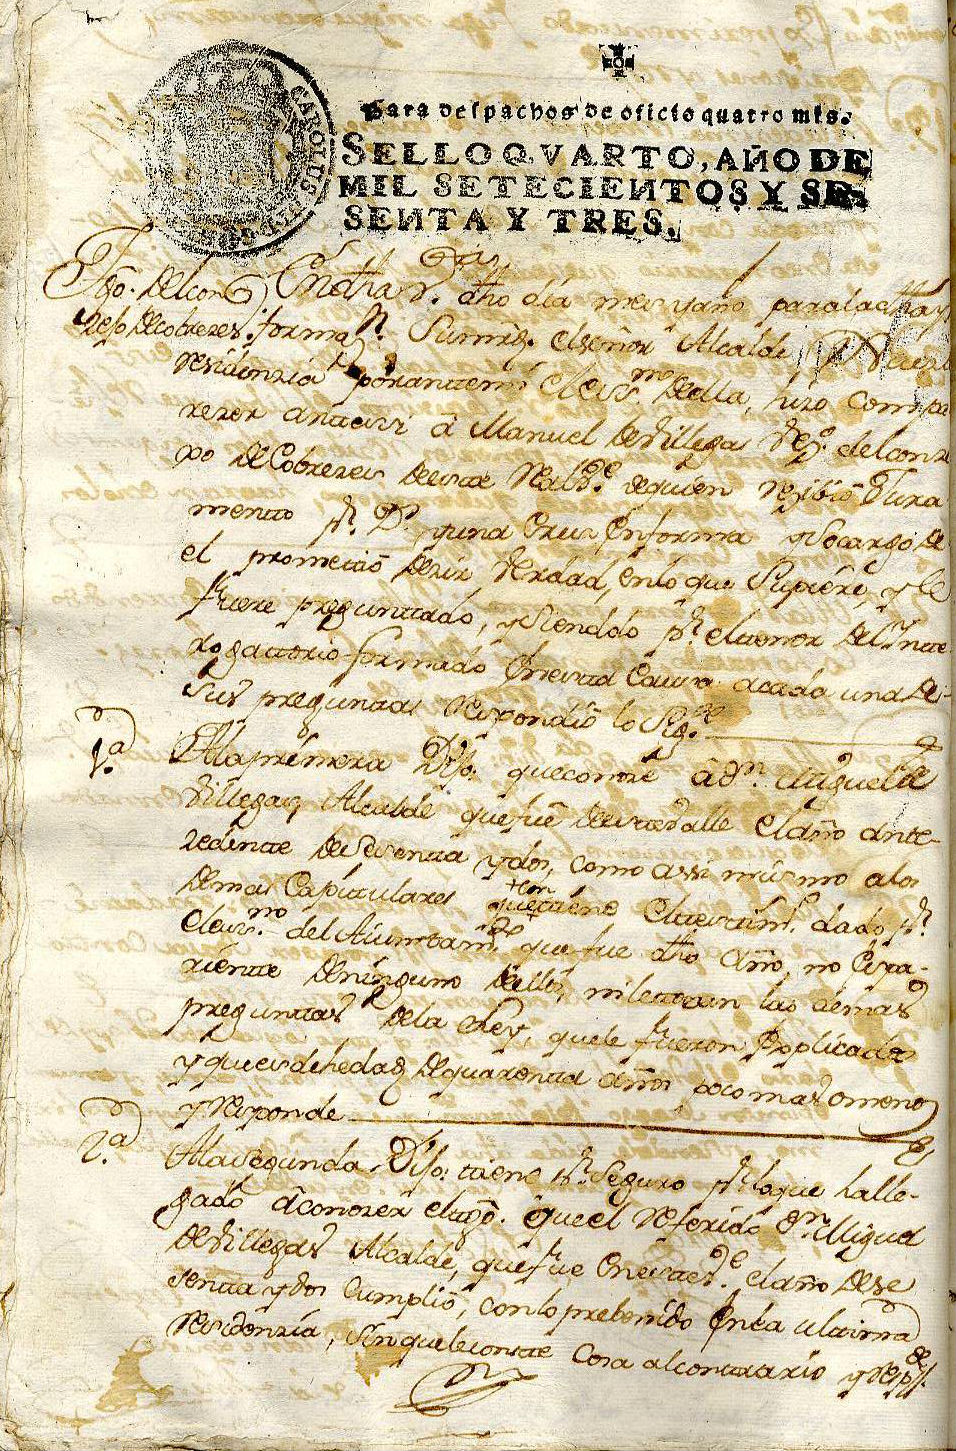 CAROLUS
Para despachos de oficio quatro mrs.
SELLO QVARTO, AÑO DE
MIL SETECIENTOS Y SE-
SENTA Y TRES.
Tgo. del con
En dho dia mes y año para la dha
de Cobrezes forma Su mrd. el señor Alcalde
residenzia por ante mi el essno. de ella, hizo compa
rezer ante si â Manuel de Villegas vº. del conze
xo de Cobrezes de este Real Ve. de quien rezibiô Jura
mento pr. Ds. y una Cruz en forma y Socargo de
el prometiô dezir verdad, en lo que Supiere, y le
fuere preguntado, y siendolo pr. el tenor del Inte
rogatorio formado en esta Causa a cada una de
sus preguntas respondiô lo Sigte.
1.a A la primera Dijo: que conoze â dn. Miguel de
Villegas Alcalde que fuê de este valle el año ante-
zedente de Sesenta y dos, como assi mismo a los
demas Capitulares con que tiene el testimo. dado pr.
el essno. del Aiuntamto. que fue dho año, no es pa-
riente de ninguno de ellos, ni le tocan las demas
preguntas de la Ley, que le fueron explicadas
y que es de hedad de quarenta años poco mas o menos
y responde
2.a A la segunda Dijo: tiene pr. Seguro pr. lo que ha lle-
gado â conozer el tgo. que el referido dn. Miguel
de Villegas Alcalde, que fue en este Ve. el año de se
senta y dos cumpliô, con lo prebenido en la ultima
residenzia, sin que le conste Cosa al contrario y respde.